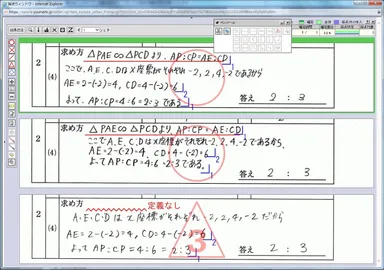 求め方 △PAE∽△PCDより、AP:CP=AE:CD
ここで、A、E、C、Dはx座標がそれぞれ-2, 2, 4, -2であるから
AE=2-(-2)=4, CD=4-(-2)=6
よって、AP:CP=4:6=2:3である。
2
(4)
答え 2 : 3
求め方 △PAE∽△PCDより、AP:CP=AE:CD
ここでA、E、C、Dはx座標がそれぞれ-2, 2, 4, -2であるから、
AE=2-(-2)=4、CD=4-(-2)=6
よってAP:CP=4:6=2:3である。
2
(4)
答え 2 : 3
求め方 定義なし
A、E、C、Dはx座標がそれぞれ-2, 2, 4, -2だから
AE=2-(-2)=4, CD=4-(-2)=6
よって AP:CP=4:6=2:3
2
(4)
3
答え 2 : 3